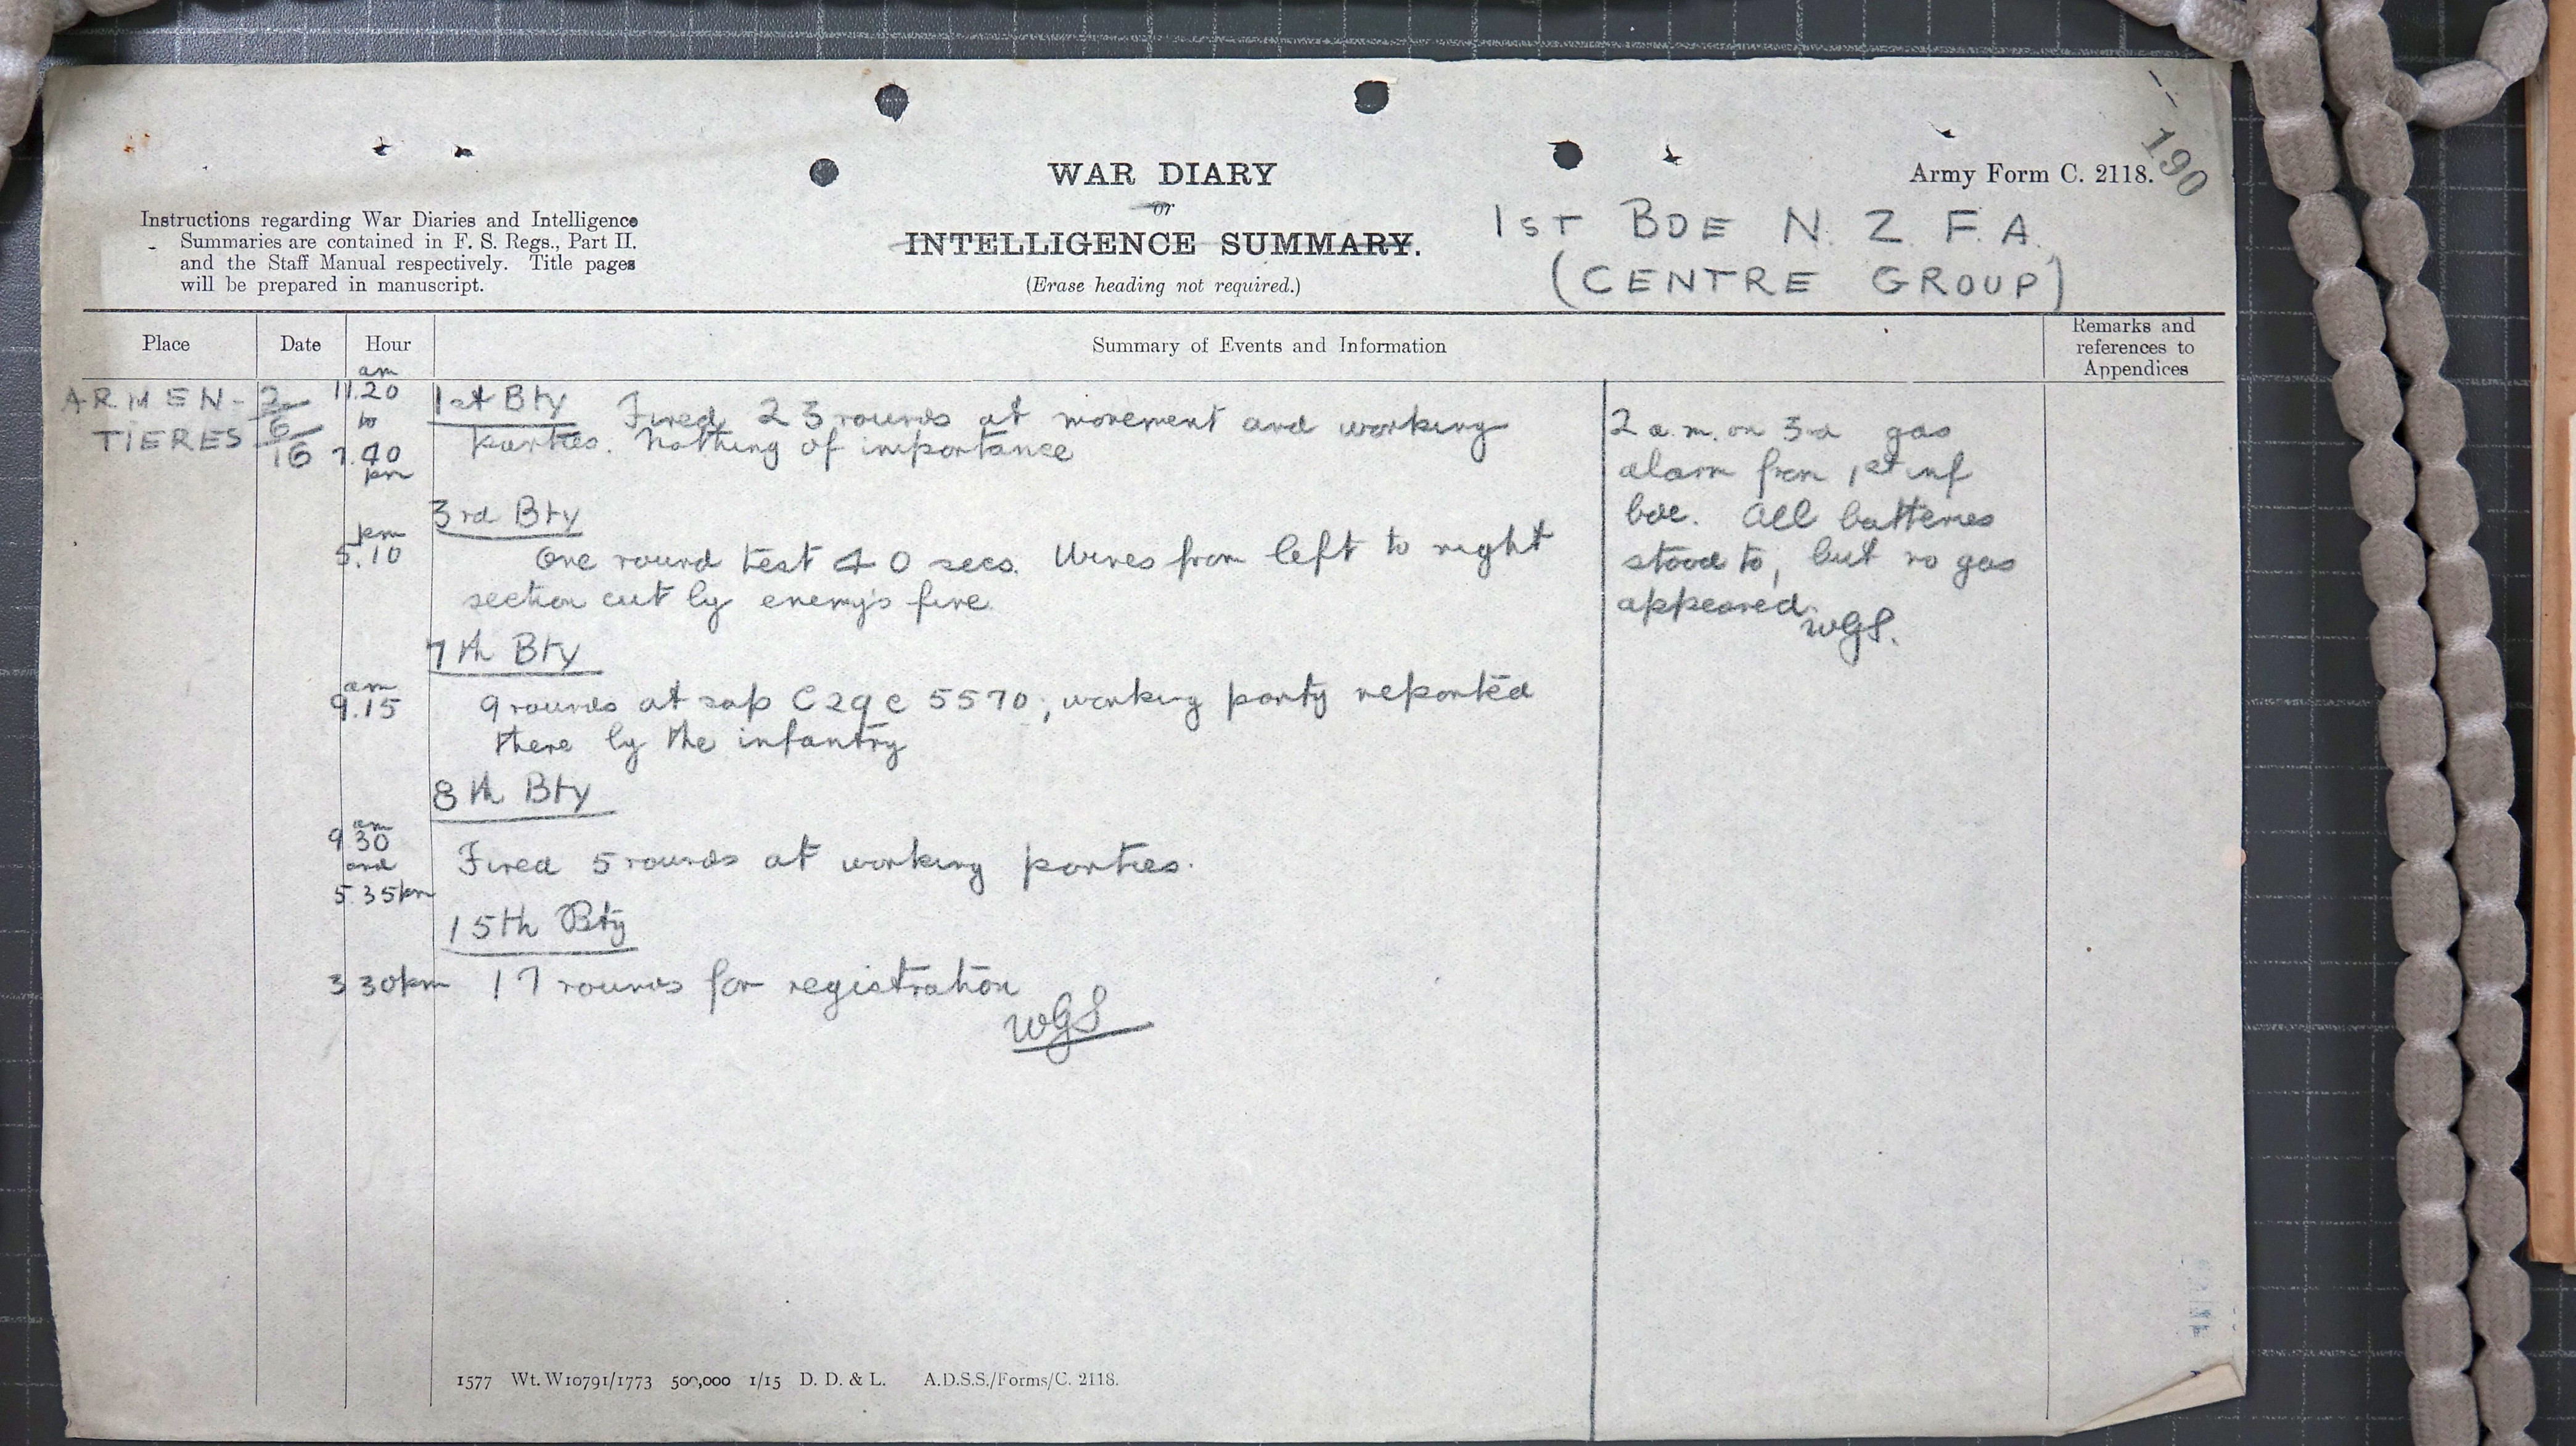 190
WAR DIARY
or
INTELLIGENCE SUMMARY.
(Erase heading not required.)
Army Form C. 2118.
Instructions regarding War Diaries and Intelligence
Summaries are contained in F. S. Regs., Part II.
and the Staff Manual respectively. Title pages
will be prepared in manuscript.
1ST BDE N. Z. F. A.
(CENTRE GROUP)
Place Date Hour Summary of Events and Information Remarks and references to Appendices
ARMEN-
TIERES
2/6/16
am
11.20
to
7.40
pm
1st Bty Fired 23 rounds at movement and working
parties. Nothing of importance
3rd Bty
pm
5.10 One round test 40 secs. Wires from left to right
section cut by enemy's fire.
7th Bty
am
9.15 9 rounds at sap C29c 5570, working party reported
there by the infantry
8th Bty
am
9 30
and
5.35pm
Fired 5 rounds at working parties.
15th Bty
3 30pm 17 rounds for registration
WGS
2 a.m. on 3rd gas
alarm from 1st inf
bde. All batteries
stood to, but no gas
appeared.
WGS.
1577 Wt. W10791/1773 500,000 1/15 D. D. & L. A.D.S.S./Forms/C. 2118.